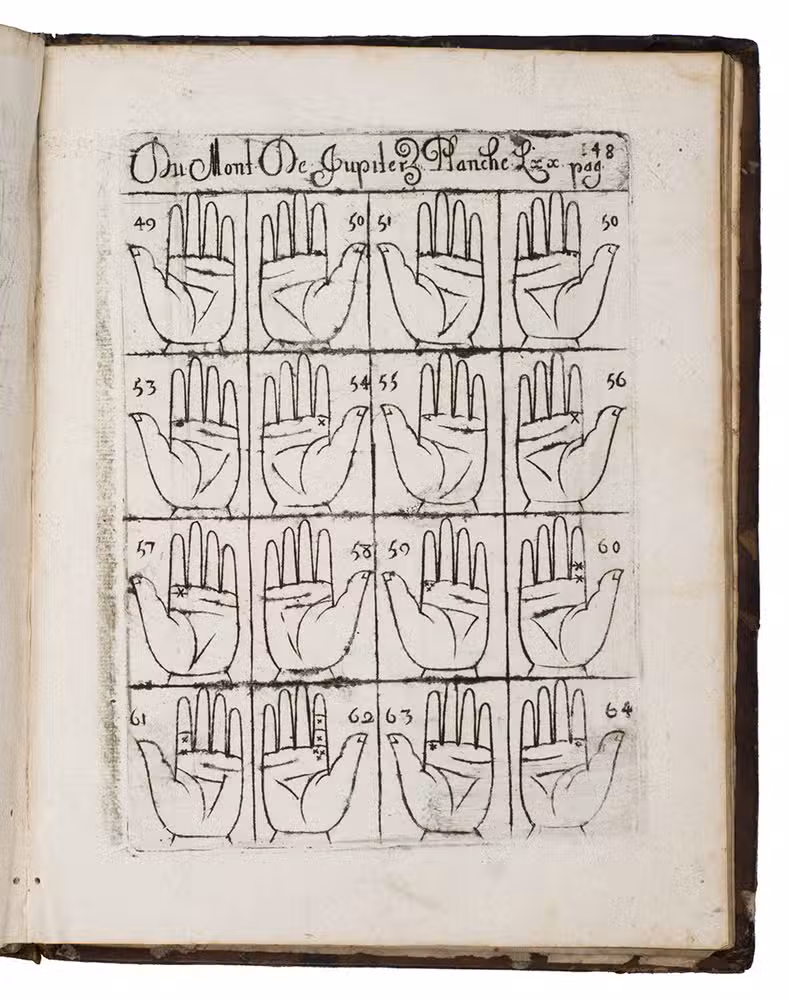 Du Mont De Jupiter Planche Lxx pag 148
49 50 51 50
53 54 55 56
57 58 59 60
61 62 63 64